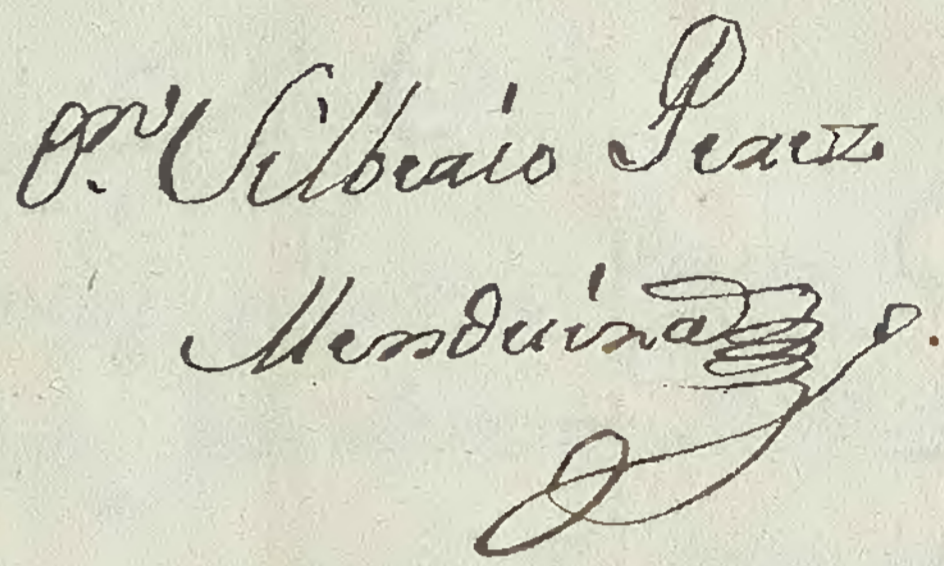 Pr. Silberio Perez
Menduina